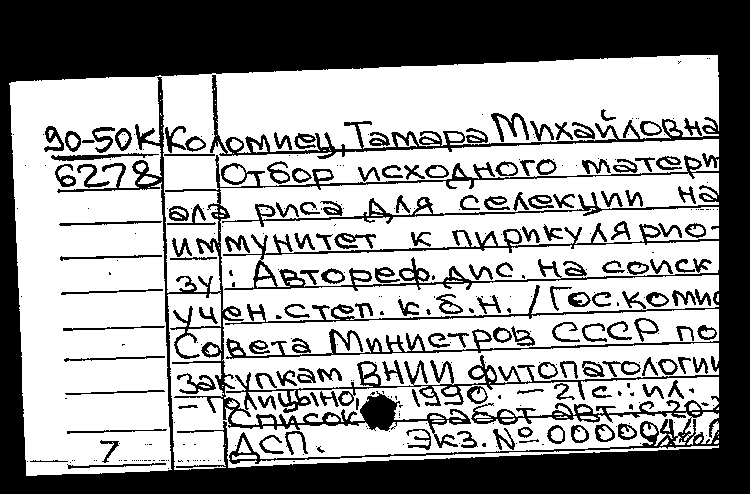 90-50К Коломиец, Тамара Михайловна
6278 Отбор исходного матери
ала риса для селекции на
иммунитет к пирикулярио-
зу: Автореф. дис. на соиск.
учен. степ. к.б.н. / Гос. комис
Совета Министров СССР по
закупкам, ВНИИ фитопатологии
- Голицыно, 1990. - 21 с.: ил.
Список работ авт.: с. 20-2
7 ДСП. Экз. № 000004